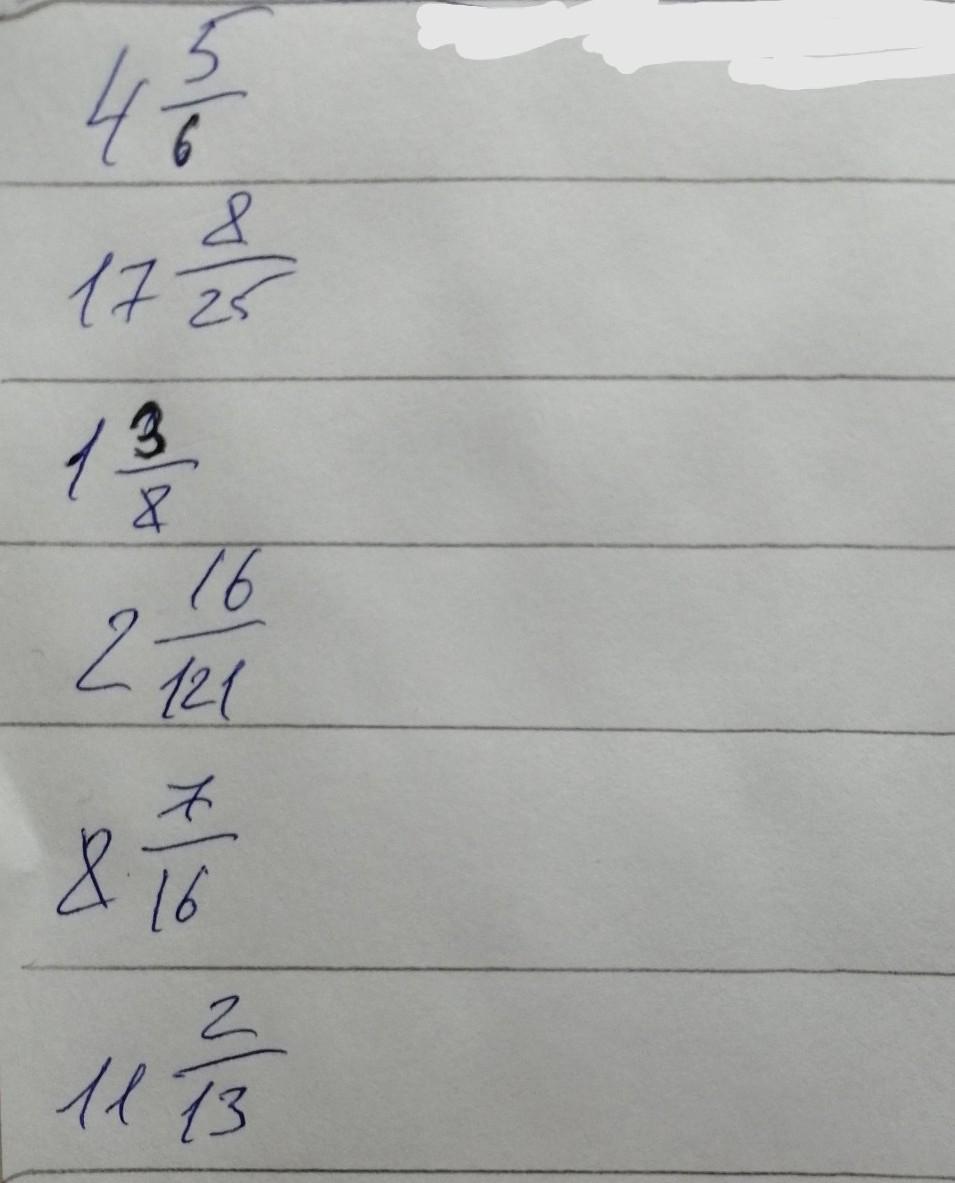 4 5/6
17 8/25
1 3/8
2 16/121
8 7/16
11 2/13